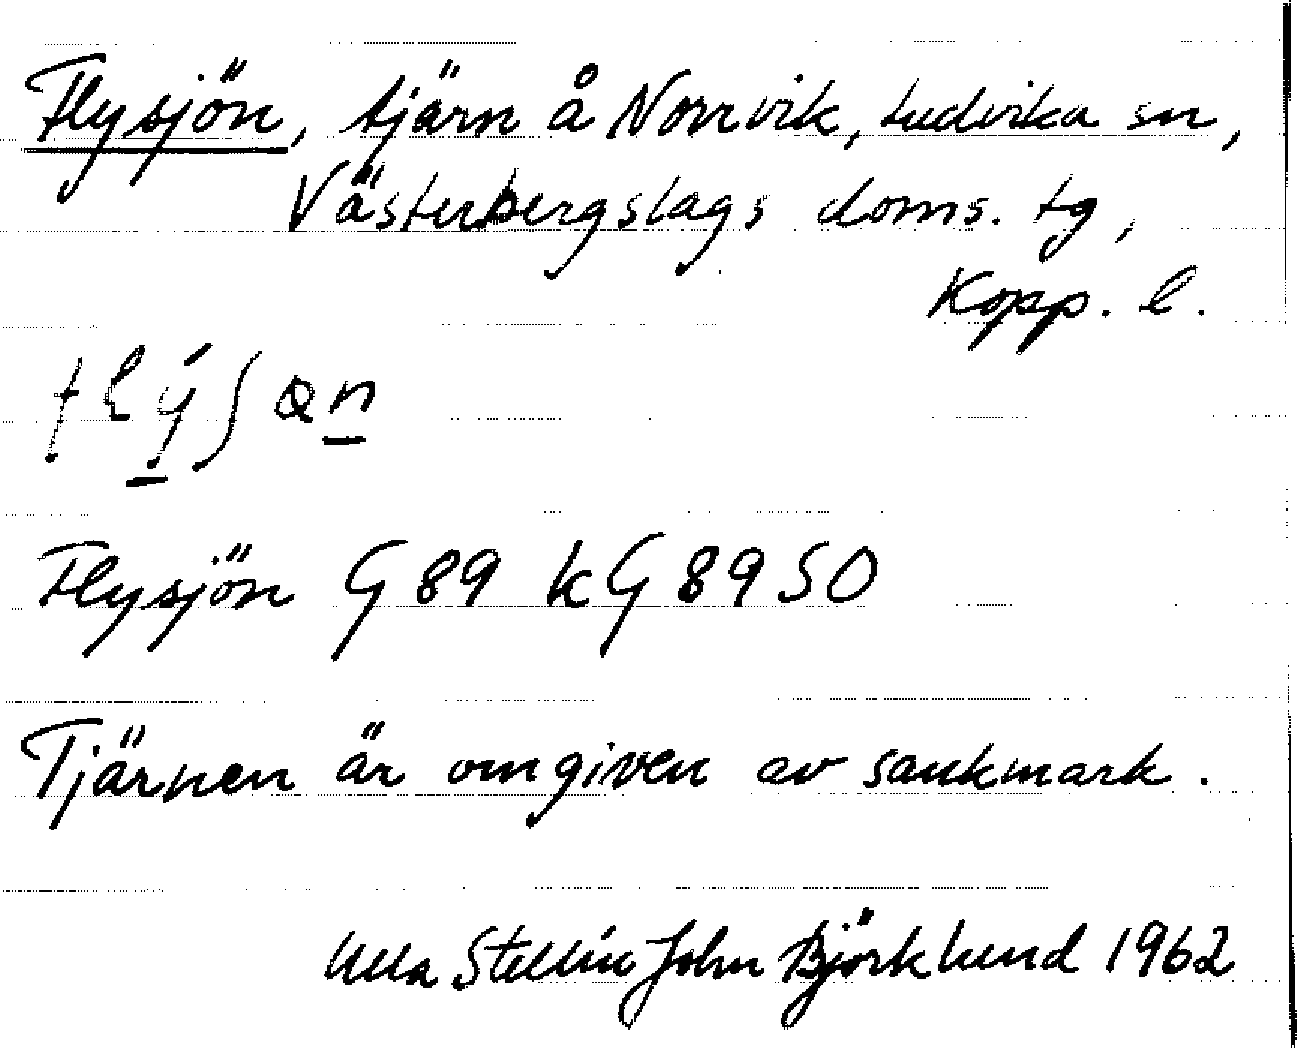 Flysjön, tjärn å Norrvik, Ludvika sn,
Västerbergslags doms. tg,
Kopp. l.
Flysjön G 89 kG 89 50
Tjärnen är omgiven av sankmark.
Ulla Stellin John Björklund 1962